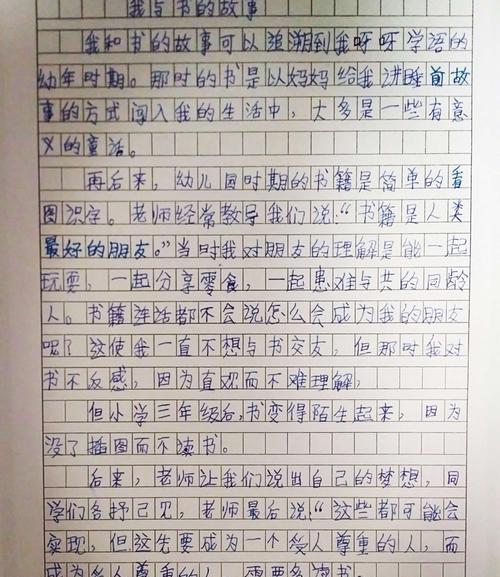 我与书的故事
我和书的故事可以追溯到我呀呀学语的
幼年时期。那时的书是以妈妈给我讲睡前故
事的方式闯入我的生活中，大多是一些有意
义的童话。
再后来，幼儿园时期的书籍是简单的看
图识字。老师经常教导我们说：“书籍是人类
最好的朋友。”当时我对朋友的理解是能一起
玩耍，一起分享零食，一起患难与共的同龄
人。书籍连话都不会说怎么会成为我的朋友
呢？这使我一直不想与书交友，但那时我对
书不反感，因为直观而不难理解，
但小学三年级后，书变得陌生起来，因为
没了插图而不读书。
后来，老师让我们说出自己的梦想，同
学们各抒己见，老师最后说：“这些都可能会
实现，但这先要成为一个受人尊重的人，而
成为受人尊重的人，需要多读书。